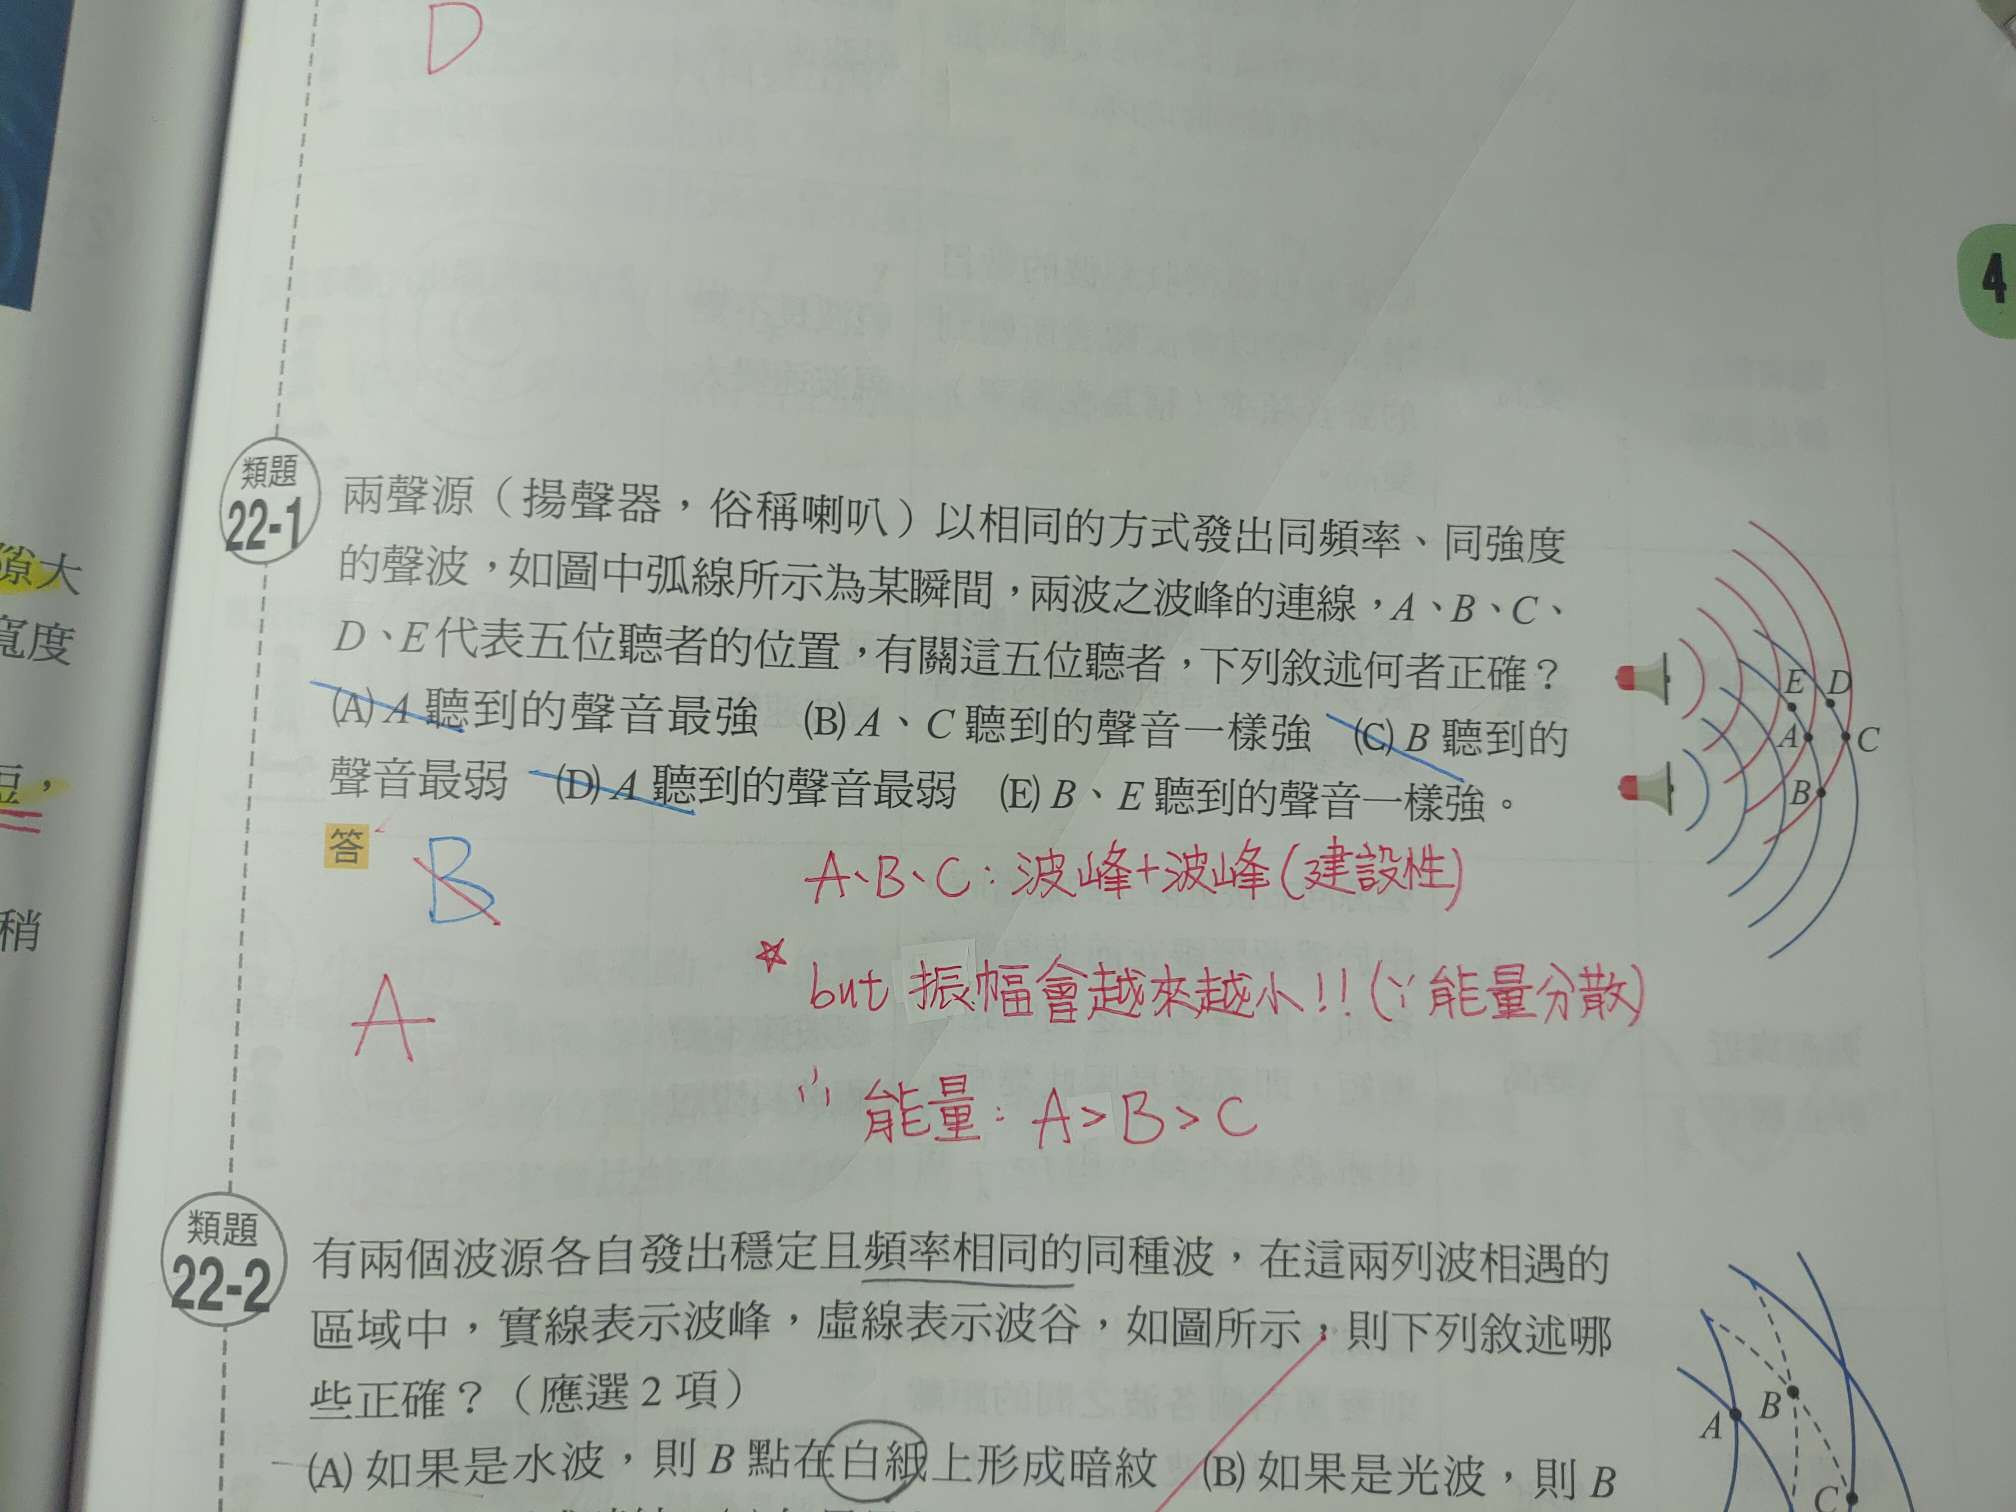 D
4
隙大
寬度
類題
22-1
兩聲源（揚聲器，俗稱喇叭）以相同的方式發出同頻率、同強度
的聲波，如圖中弧線所示為某瞬間，兩波之波峰的連線，A、B、C、
D、E代表五位聽者的位置，有關這五位聽者，下列敘述何者正確？
(A) A 聽到的聲音最強 (B) A、C 聽到的聲音一樣強 (C) B 聽到的
聲音最弱 (D) A 聽到的聲音最弱 (E) B、E 聽到的聲音一樣強。
E D
A C
B
稍
答
B
A
A、B、C：波峰+波峰(建設性)
but 振幅會越來越小!!(∵能量分散)
∴ 能量：A>B>C
類題
22-2
有兩個波源各自發出穩定且頻率相同的同種波，在這兩列波相遇的
區域中，實線表示波峰，虛線表示波谷，如圖所示，則下列敘述哪
些正確？（應選 2 項）
(A) 如果是水波，則 B 點在白紙上形成暗紋 (B) 如果是光波，則 B
A
B
C